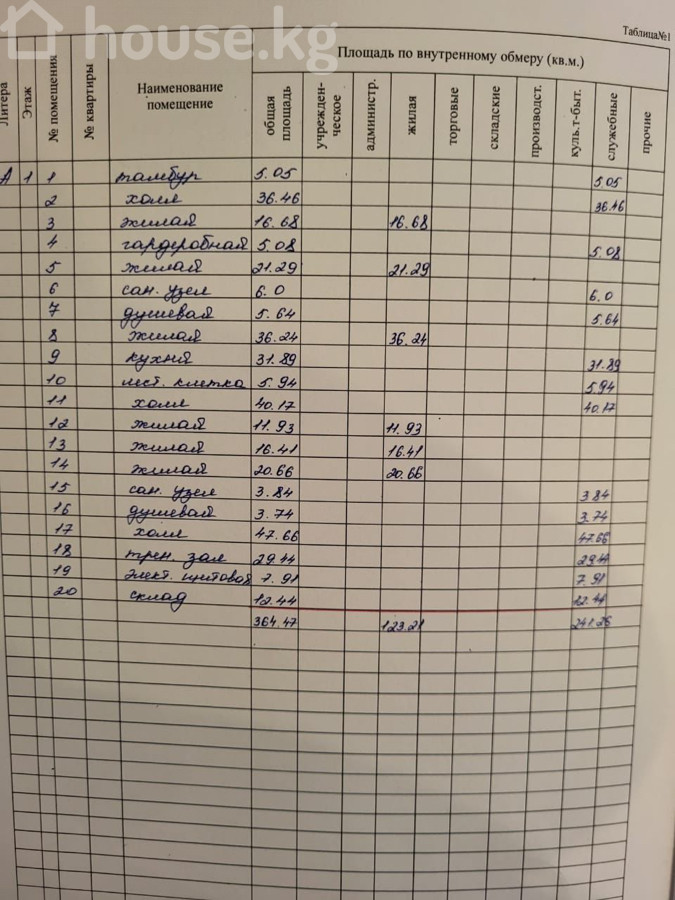 house.kg
Таблица№1
Литера Этаж № помещения № квартиры Наименование помещение Площадь по внутренному обмеру (кв.м.)
общая площадь учрежден-ческое администр. жилая торговые складские производст. куль.т-быт. служебные прочие
А 1 1 тамбур 5.05 5.05
2 холл 36.46 36.46
3 жилая 16.68 16.68
4 гардеробная 5.08 5.08
5 жилая 21.29 21.29
6 сан. узел 6.0 6.0
7 душевая 5.64 5.64
8 жилая 36.24 36.24
9 кухня 31.89 31.89
10 лест. клетка 5.94 5.94
11 холл 40.17 40.17
12 жилая 11.93 11.93
13 жилая 16.41 16.41
14 жилая 20.66 20.66
15 сан. узел 3.84 3.84
16 душевая 3.74 3.74
17 холл 47.66 47.66
18 трен. зал 29.44 29.44
19 элект. щитовая 7.91 7.91
20 склад 12.44 12.44
364.47 123.21 241.26